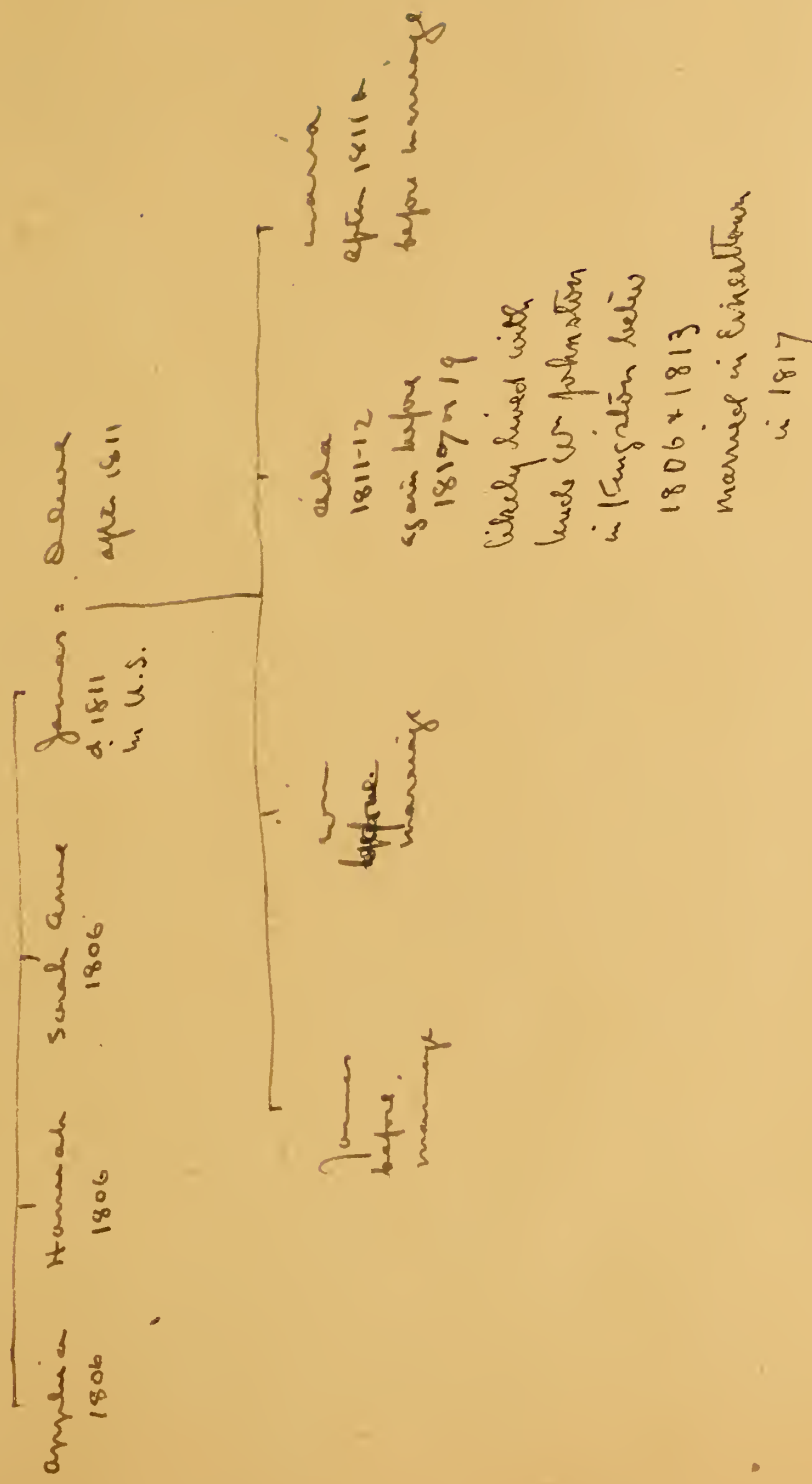 Apphia
1806
Hannah
1806
Sarah Anne
1806
James =
d 1811
in U.S.
after 1811
James
before
marriage
Wm
before
marriage
Ada
1811-12
again before
1817 or 19
likely lived with
Uncle Wm Johnston
in Kingston
1806 & 1813
married in Ernesttown
in 1817
Maria
after 1811 &
before marriage